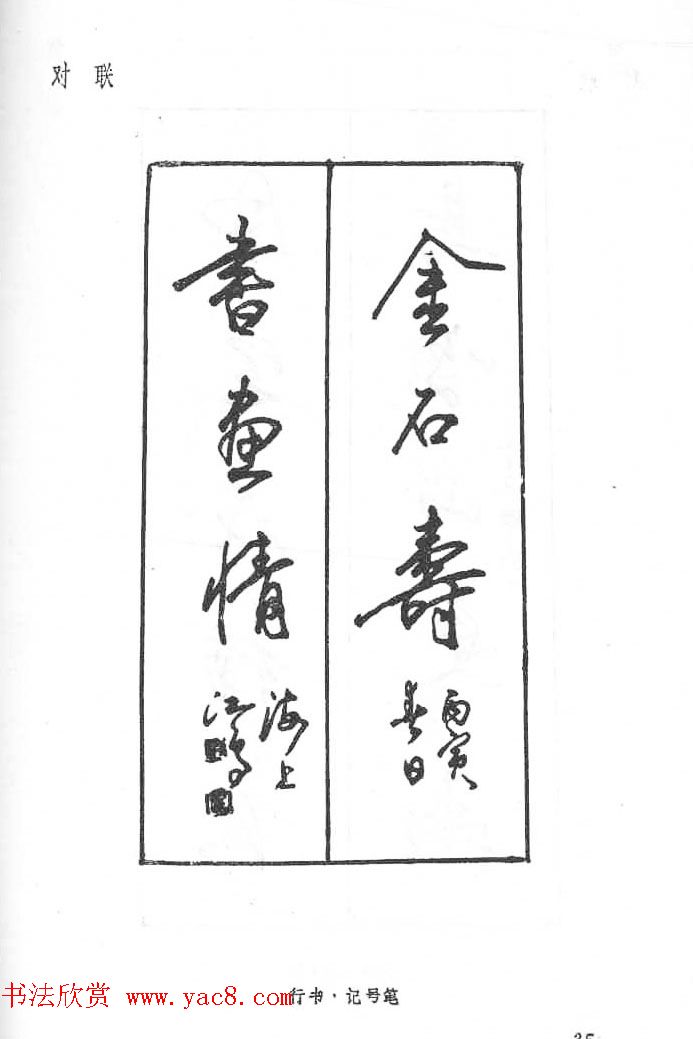 对 联
金石壽
丙寅
春日
書画情
海上
江鸟
行书·记号笔
书法欣赏 www.yac8.com
35